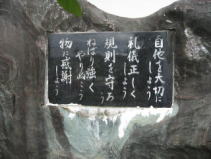 自他を大切に
しょう
礼儀正しく
しょう
規則を守ろ
う
ねばり強く
やりぬこう
物に感謝
しよう